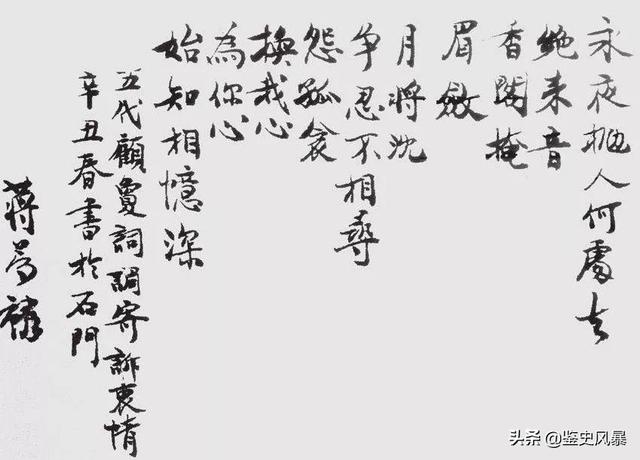 永夜抛人何處去
絶来音
香閣掩
眉斂
月將沈
争忍不相尋
怨孤衾
換我心
為你心
始知相憶深
五代顧敻詞調寄訴衷情
辛丑春書於石門
蒋
头条 @鉴史风暴